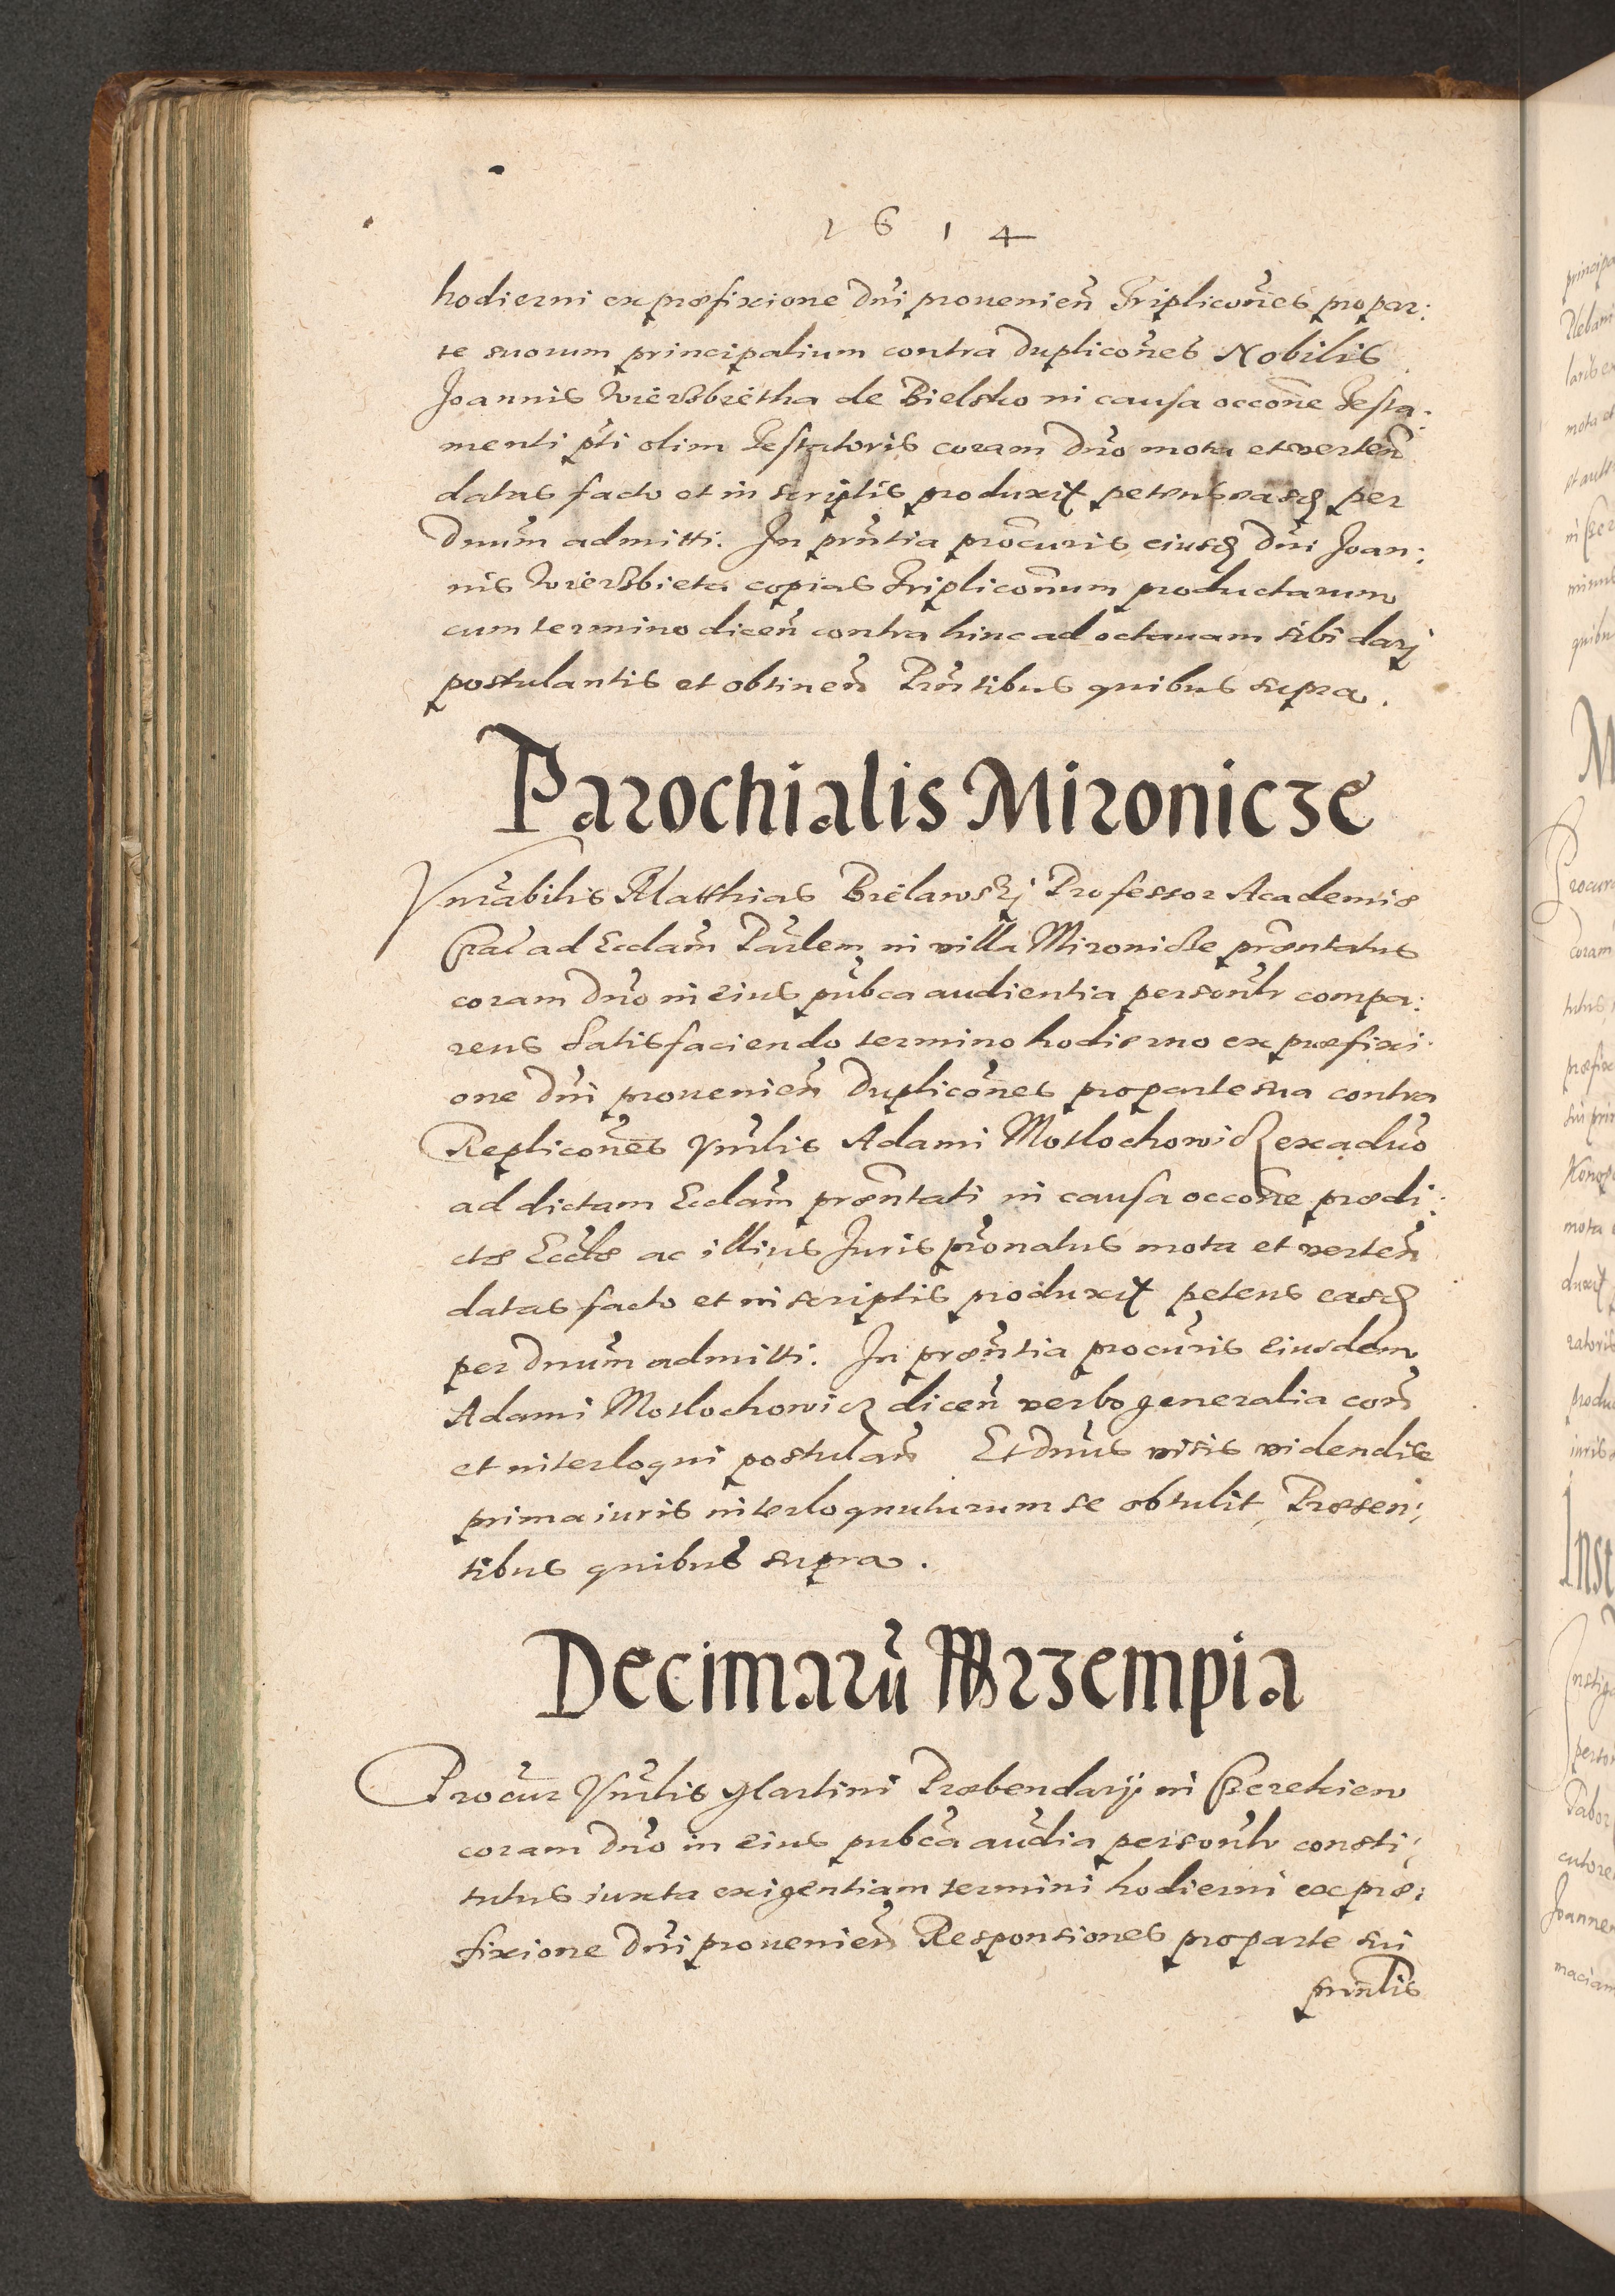 1614
hodierni ex præfixione Dn̄i prouenien̄ Triplicōnes pro par:
te suorum principalium contra duplicōnes Nobilis
Joannis Wierzbietha de Bielsko in causa occōne Testa:
menti p̄ti olim Testatoris coram Dn̄o mota et verten̄
datas facto et in scriptis produxit petens easd per
Dnūm admitti. In prn̄tia procūris eiusd Dn̄i Joan:
nis Wierzbieta copias Triplicōnum productarum
cum termino dicen̄ contra hinc ad octauam sibi darj
postulantis et obtinen̄ Prn̄tibus quibus supra.
Parochialis Mironicze
Vn̄rabilis Matthias Brelawskj Professor Academiæ
Crac̄ ad Ecclam̄ Parlem̄ in villa Mironicze præn̄tatus
coram Dn̄o in eius pub̄ca audientia personlr̄ compa:
rens satisfaciendo termino hodierno ex præfixi:
one Dn̄i prouenien̄ Duplicōnes pro parte sua contra
Replicōnes Vn̄rlis Adami Moslochowicz ex aduo
ad dictam Ecclam̄ præn̄tati in causa occōne prædi:
ctæ Eccl̄æ ac illius Juris prōnatus mota et verten̄
datas facto et in scriptis produxit petens easd
per Dnūm admitti. In præn̄tia procūris eiusdem
Adami Moslochowicz dicen̄ verbo generalia con̄
et interloqui postulan̄ Et Dnūs visis videndis
prima iuris interloquuturum se obtulit, Præsen:
tibus quibus supra.
Decimarū Wrzempia
Procur̄ Vn̄rlis Martini Præbendarij in Czerekiew
coram Dn̄o in eius pub̄ca aud̄ia personlr̄ consti:
tutus iuxta exigentiam termini hodierni ex præ:
fixione Dn̄i prouenien̄ Responsiones pro parte sui
prin̄lis